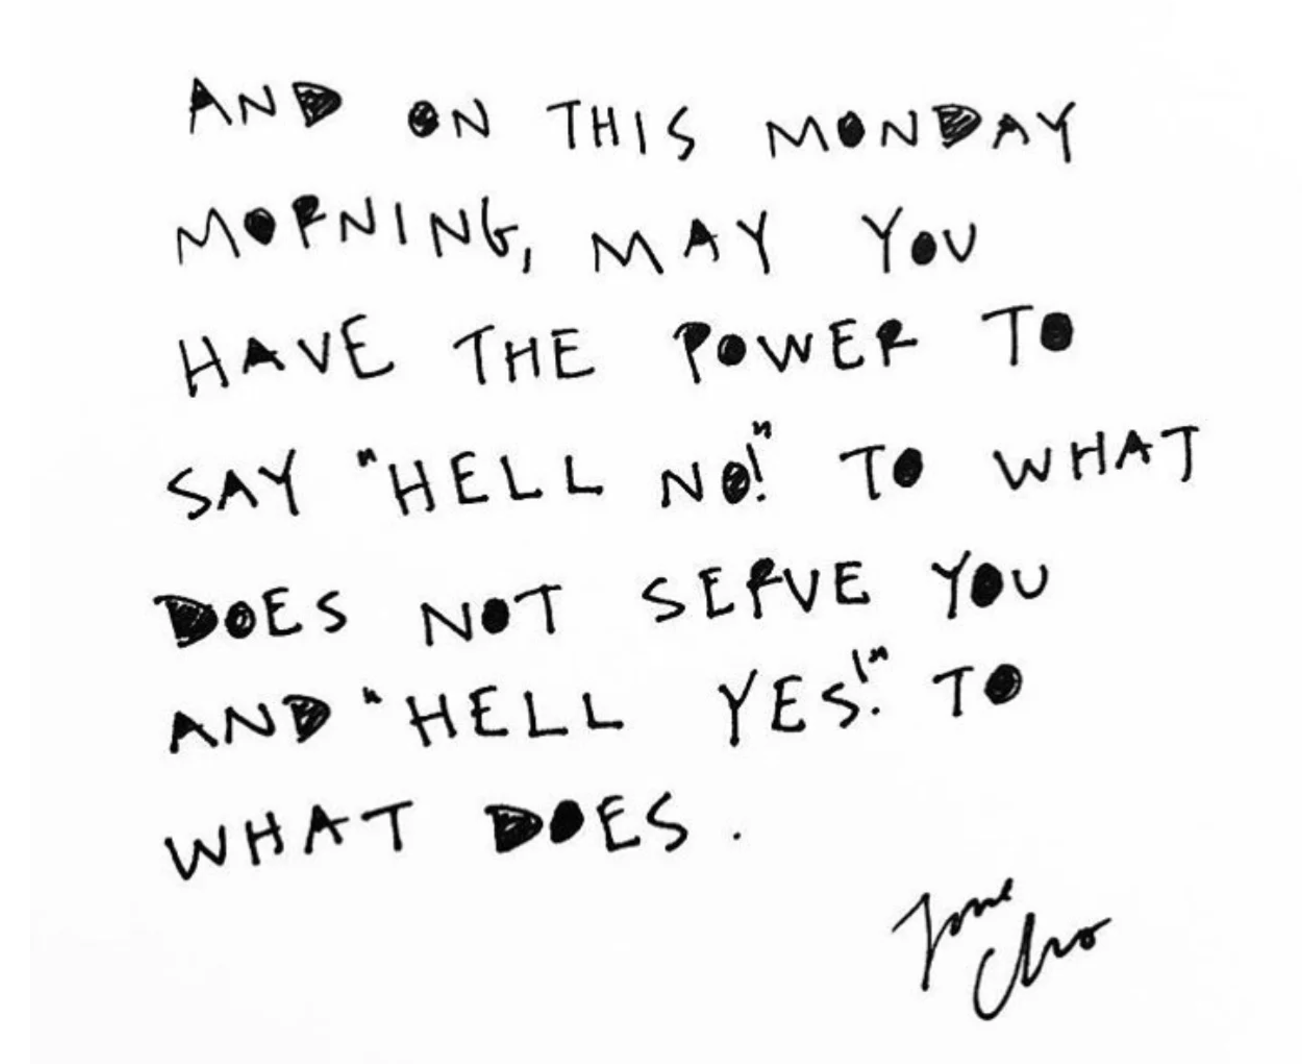 AND ON THIS MONDAY
MORNING, MAY YOU
HAVE THE POWER TO
SAY "HELL NO!" TO WHAT
DOES NOT SERVE YOU
AND "HELL YES!" TO
WHAT DOES.
Cho